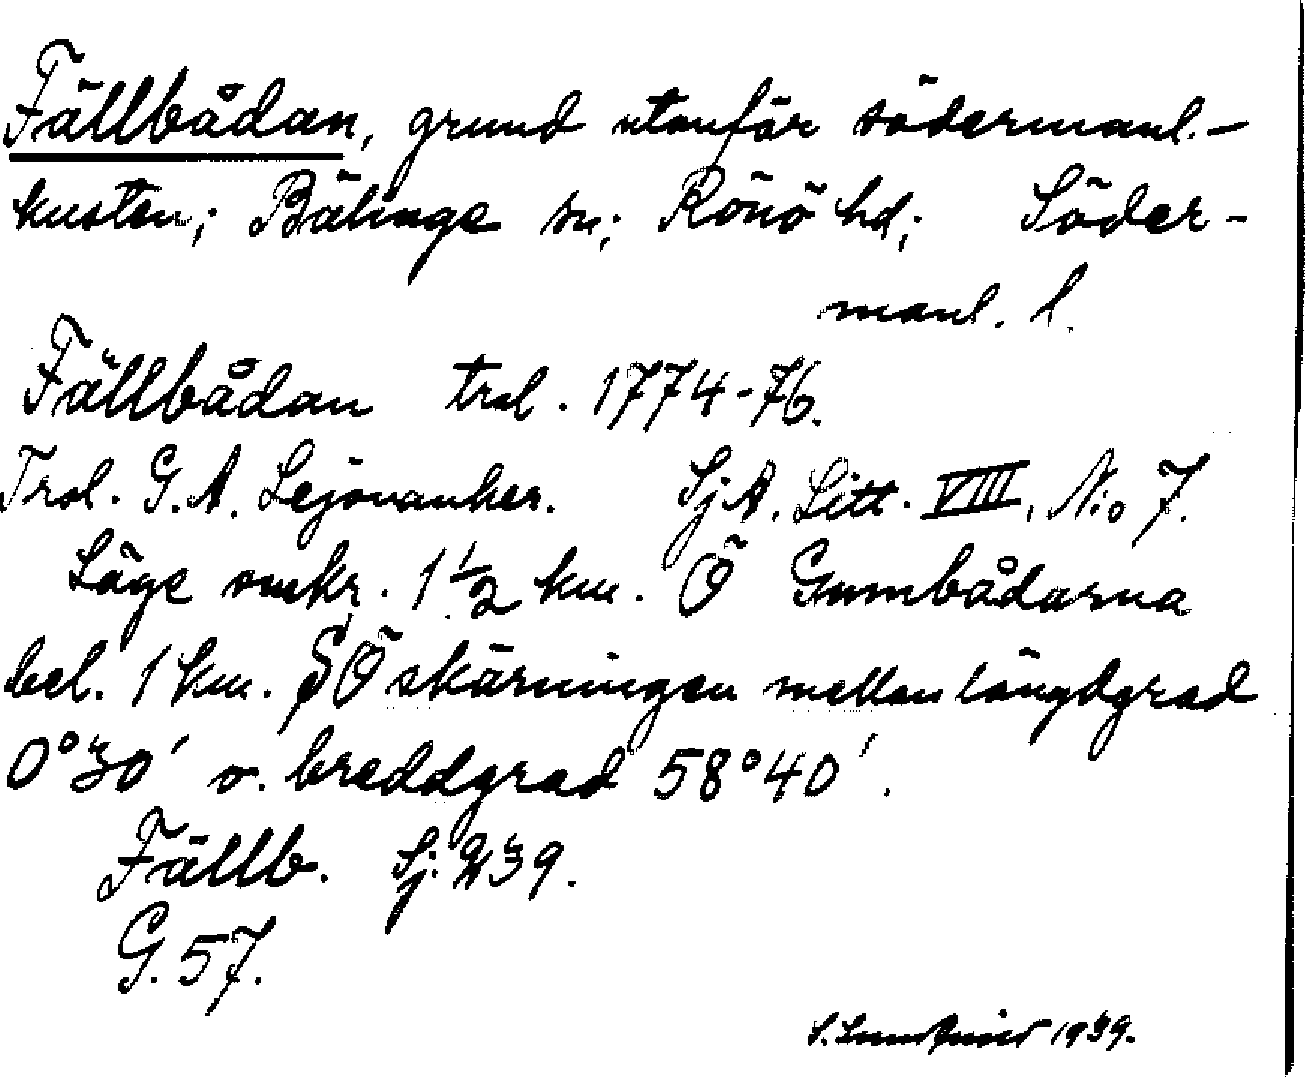 Fällbådan, grund utanför södermanl.-
kusten; Bälinge sn; Rönö hd; Söder-
manl. l.
Fällbådan trol. 1774-76.
Trol. G. A. Lejonanker. Sj A. Litt. VIII, N:o 7.
Läge omkr. 1 1/2 km. Ö Gumbådarna
bel. 1 km. SÖ skärningen mellan längdgrad
0° 30' o. breddgrad 58° 40'.
Fällb. Sj. 239.
G. 57.
S. 1939.